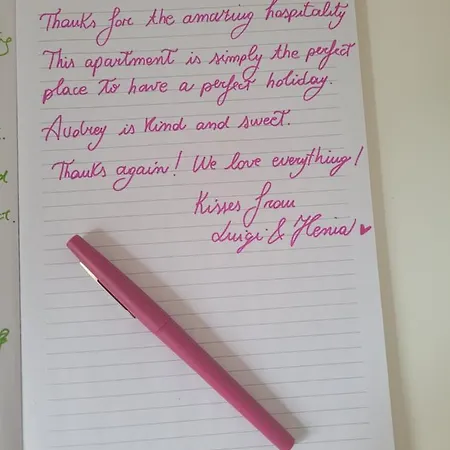 Thanks for the amazing hospitality
This apartment is simply the perfect
place to have a perfect holiday.
Audrey is kind and sweet.
Thanks again! We love everything!
Kisses from
Luigi & Henia ♥